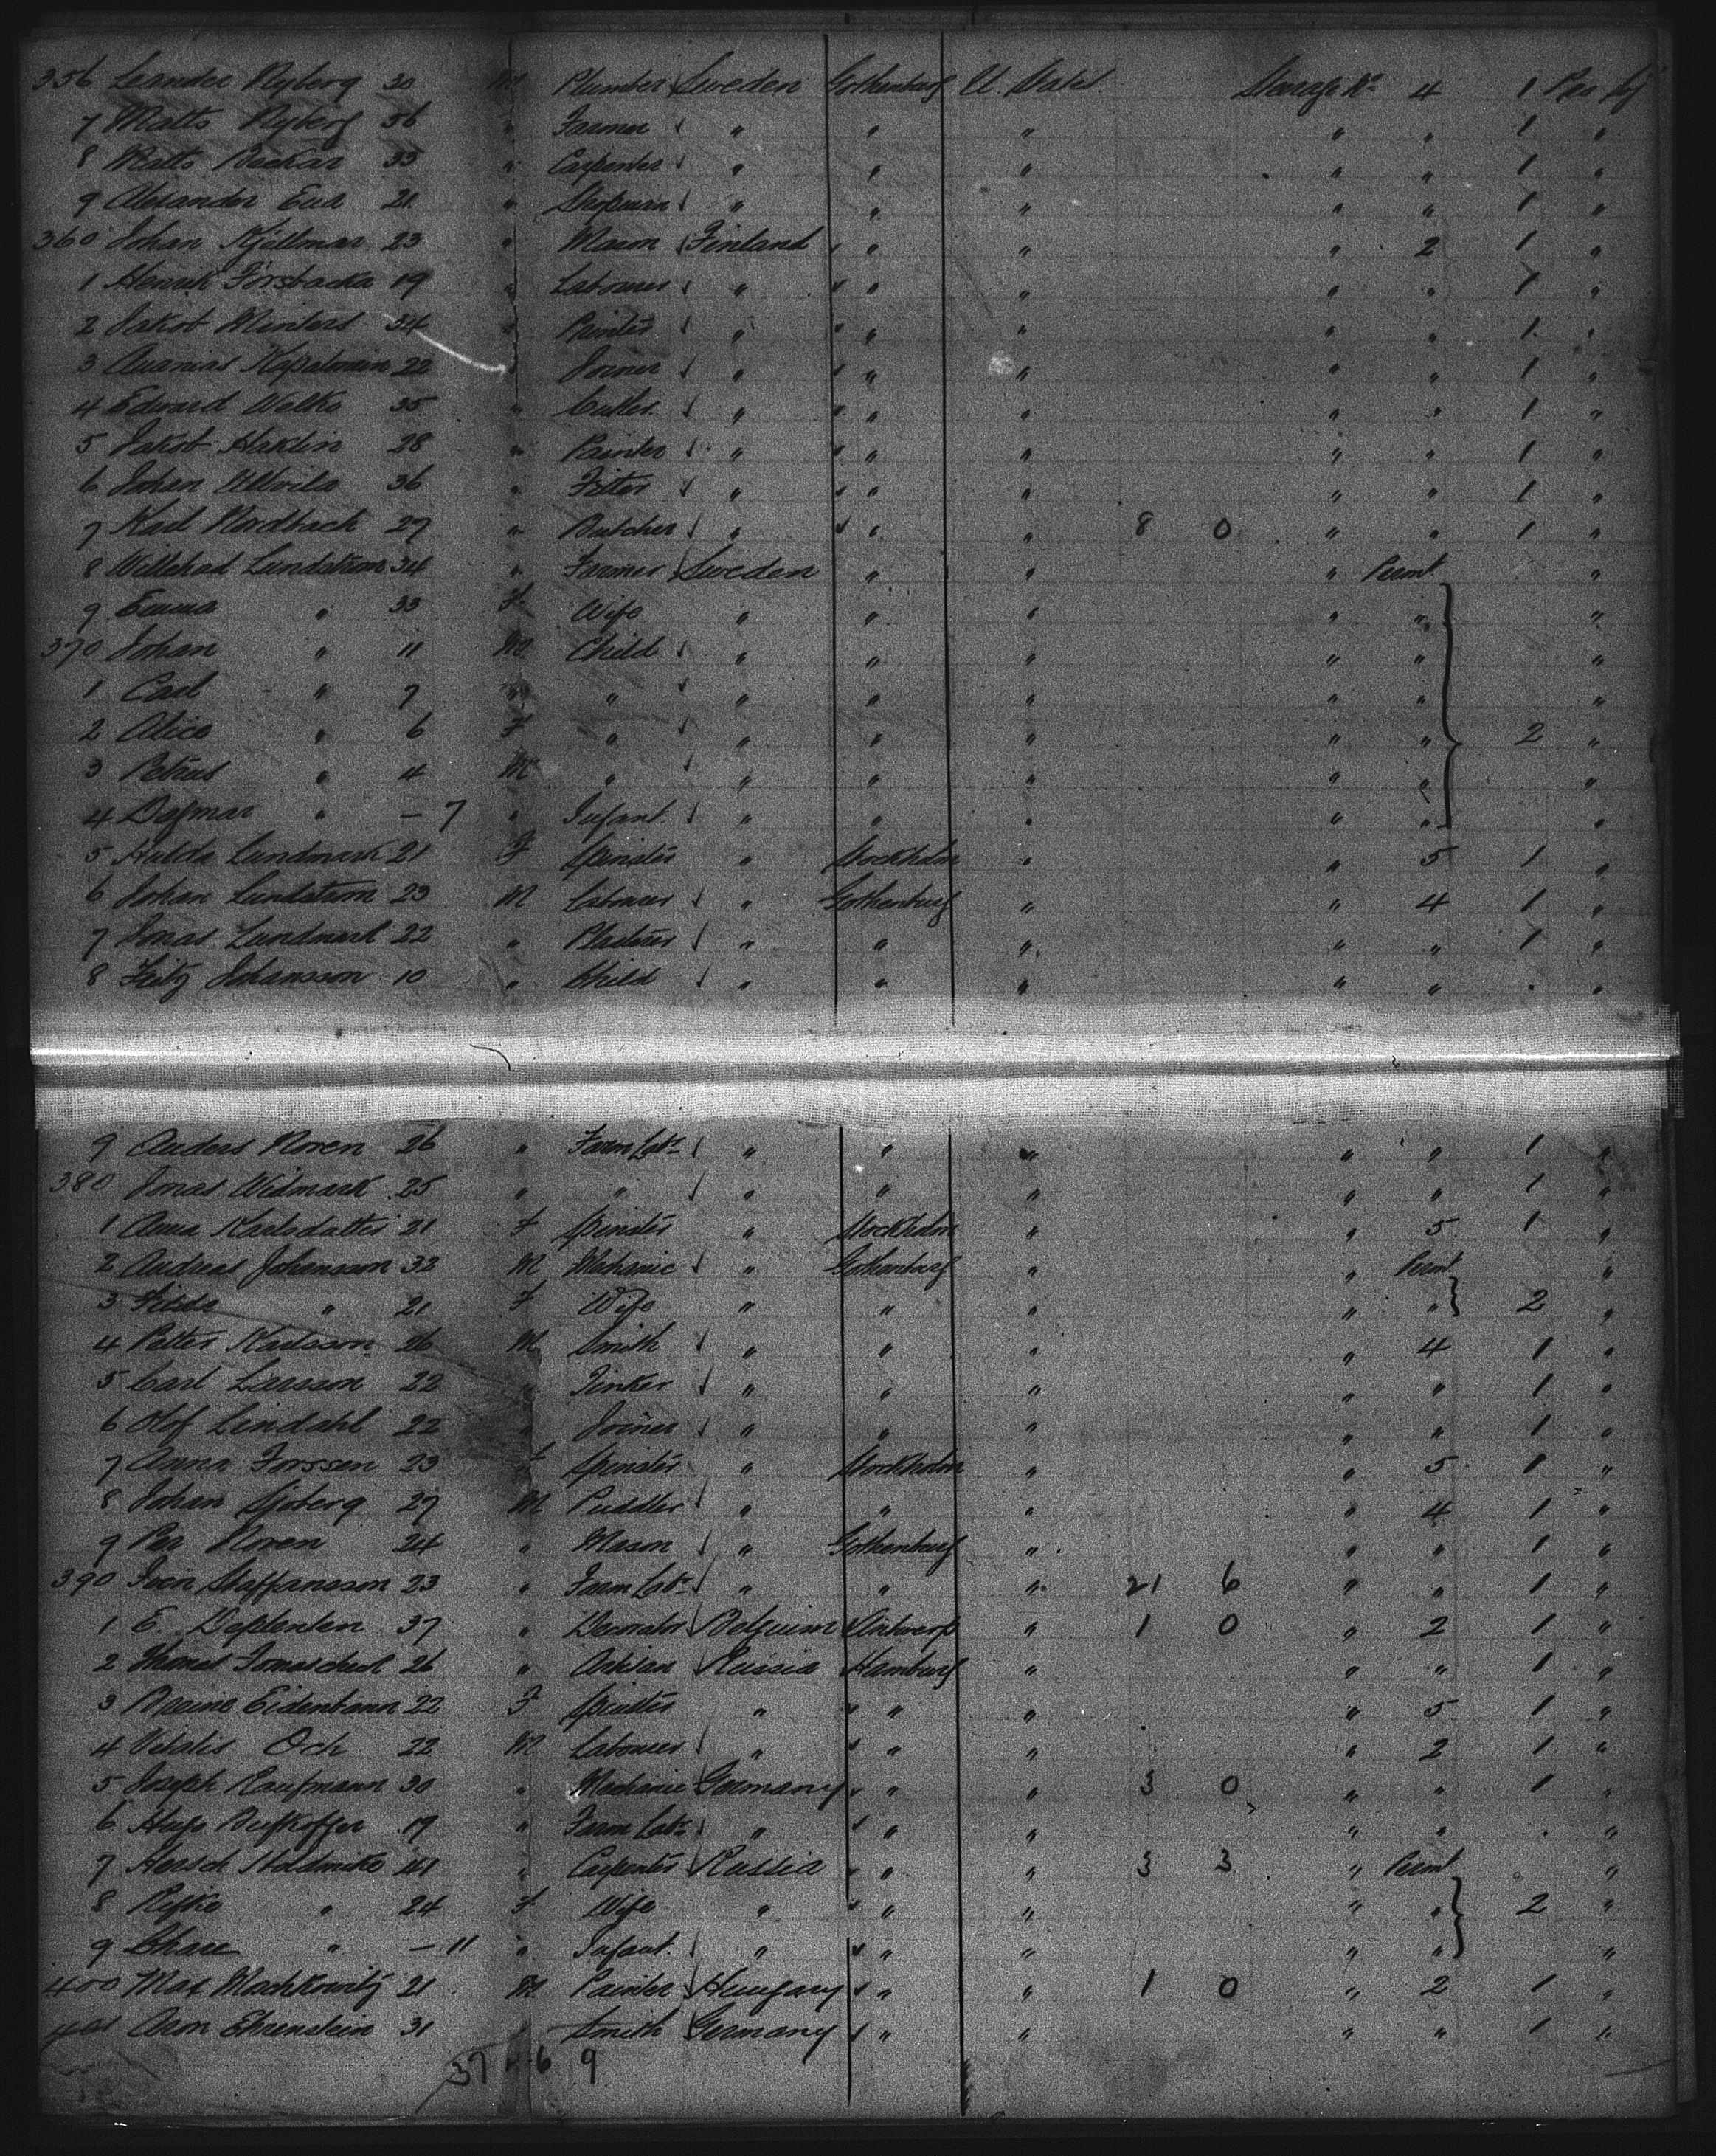 356 Leander Nyberg 30 M Plumber Sweden Gothenburg U. States Steerage No 4 1 Pas Lg
7 Matts Nyberg 56 " Farmer " " " " " 1 "
8 Matts Backar 33 " Carpenter " " " " " 1 "
9 Alexander Eud 21 " Shopman " " " " " 1 "
360 Johan Kjellman 23 " Mason Finland " " " 2 1 "
1 Henrik Forsbacka 19 " Labourer " " " " " 1 "
2 Jakob Minters 34 " Painter " " " " " 1 "
3 Ananias 22 " Joiner " " " " " 1 "
4 Edward Welko 35 " Cutler " " " " " 1 "
5 Jakob Haklin 28 " Painter " " " " " 1 "
6 Johan 36 " Fitter " " " " " 1 "
7 Karl Nordback 27 " Butcher " " " 8 0 " " 1 "
8 Willehad Lundstrom 34 " Farmer Sweden " " " Permt "
9 Emma " 33 F Wife " " " " " "
370 Johan " 11 M Child " " " " " "
1 Carl " 7 " " " " " " " "
2 Alice " 6 F " " " " " " 2 "
3 Petrus " 4 M " " " " " " "
4 Dagmar " – 7 " Infant " " " " " "
5 Hulda Lundmark 21 F Spinster " Stockholm " " 5 1 "
6 Johan Lundstrom 23 M Labourer " Gothenburg " " 4 1 "
7 Jonas Lundmark 22 " Plasterer " " " " " 1 "
8 Fritz Johansson 10 " Child " " " " " "
9 Anders Noren 26 " Farm Labr " " " " " 1 "
380 Jonas Widmark 25 " " " " " " " 1 "
1 Anna Karlsdatter 21 F Spinster " Stockholm " " 5 1 "
2 Andreas Johansson 32 M Mechanic " Gothenburg " " Permt "
3 Hilda " 21 F Wife " " " " " 2 "
4 Petter Karlsson 26 M Smith " " " " 4 1 "
5 Carl Larsson 22 " Tinker " " " " " 1 "
6 Olof Lindahl 22 " Joiner " " " " " 1 "
7 Anna Forssen 23 F Spinster " Stockholm " " 5 1 "
8 Johan Sjoberg 27 M Puddler " " " " 4 1 "
9 Per Noren 24 " Mason " Gothenburg " " " 1 "
390 Sven Staffansson 23 " Farm Labr " " " 21 6 " " 1 "
1 E. 37 " Decorator Belgium Antwerp " 1 0 " 2 1 "
2 Thomas 26 " Artisan Russia Hamburg " " " 1 "
3 Eidenbann 22 F Spinster " " " " 5 1 "
4 Vitalis Och 22 M Labourer " " " " 2 1 "
5 Joseph Kaufmann 30 " Mechanic Germany " " 3 0 " " 1 "
6 Hugo 19 " Farm Labr " " " " " "
7 Hersch 41 " Carpenter Russia " " 3 3 " Permt "
8 Rifke " 24 F Wife " " " " " 2 "
9 " – 11 " Infant " " " " " "
400 Max Moschkowitz 21 M Painter Hungary " " 1 0 " 2 1 "
401 Aron Ehrenstein 31 " Smith Germany " " " " 1 "
37 " 6 9